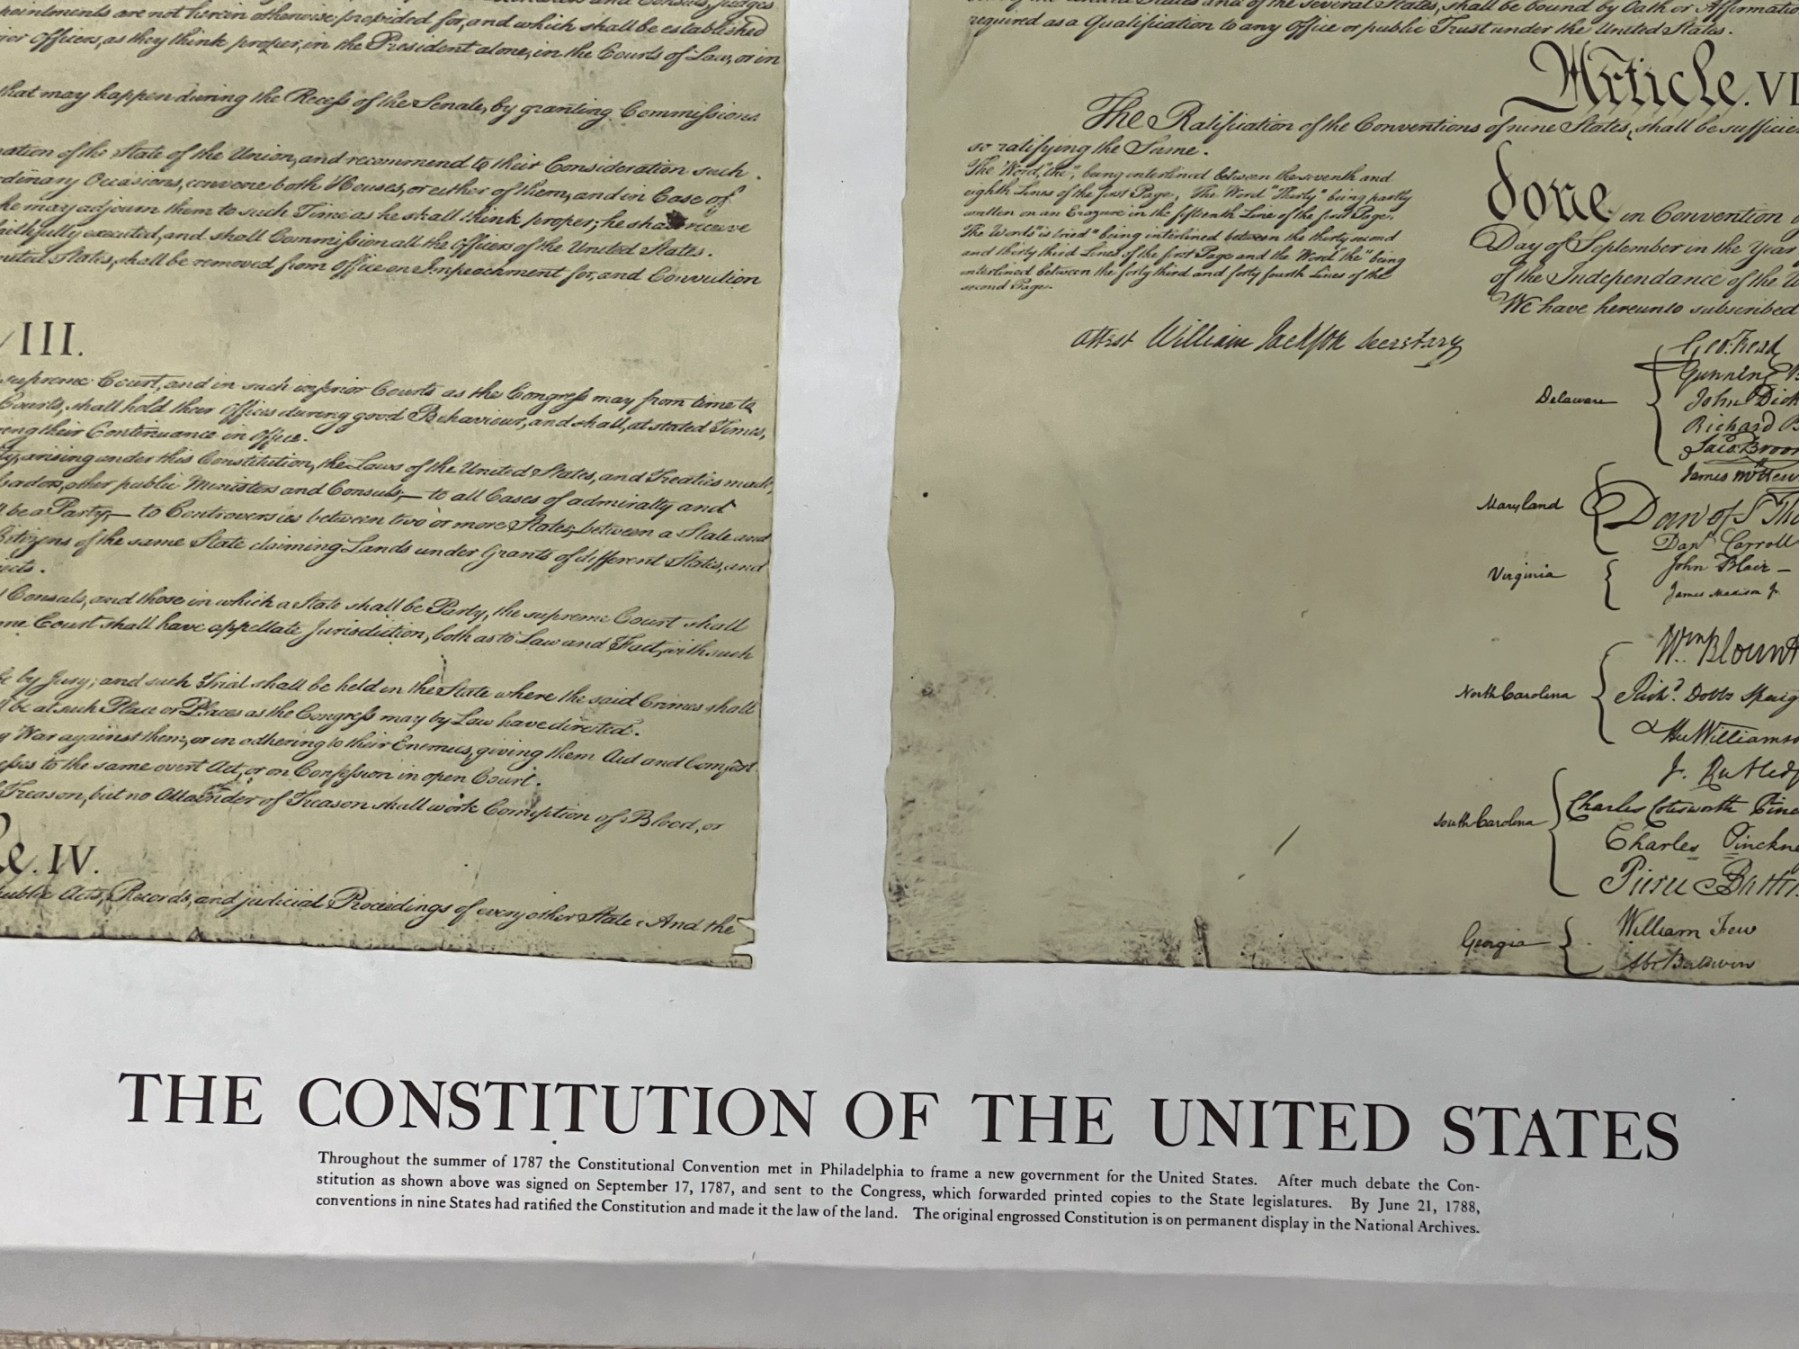 ointments are not herein otherwise provided for, and which shall be established
ior Officers, as they think proper, in the President alone, in the Courts of Law, or in
that may happen during the Recess of the Senate, by granting Commissions
ation of the State of the Union, and recommend to their Consideration such
rdinary Occasions, convene both Houses, or either of them, and in Case of
he may adjourn them to such Time as he shall think proper; he shall receive
aithfully executed, and shall Commission all the Officers of the United States.
nited States, shall be removed from Office on Impeachment for, and Conviction
III.
supreme Court, and in such inferior Courts as the Congress may from time to
Courts, shall hold their Offices during good Behaviour, and shall, at stated Times,
their Continuance in Office.
arising under this Constitution, the Laws of the United States, and Treaties made,
other public Ministers and Consuls;— to all Cases of admiralty and
be a Party;— to Controversies between two or more States;—between a State and
Citizens of the same State claiming Lands under Grants of different States, and
Consuls, and those in which a State shall be Party, the supreme Court shall
me Court shall have appellate Jurisdiction, both as to Law and Fact, with such
be by Jury; and such Trial shall be held in the State where the said Crimes shall
be at such Place or Places as the Congress may by Law have directed.
War against them, or in adhering to their Enemies, giving them Aid and Comfort.
to the same overt Act, or on Confession in open Court.
Treason, but no Attainder of Treason shall work Corruption of Blood, or
le. IV.
public Acts, Records, and judicial Proceedings of every other State. And the
the United States and of the several States, shall be bound by Oath or Affirmatio
required as a Qualification to any Office or public Trust under the United States.
Article. VI
The Ratification of the Conventions of nine States, shall be sufficien
so ratifying the Same.
The Word, "the", being interlined between the seventh and
eighth Lines of the first Page, The Word "Thirty" being partly
written on an Erazure in the fifteenth Line of the first Page,
The Words "is tried" being interlined between the thirty second
and thirty third Lines of the first Page and the Word "the" being
interlined between the forty third and forty fourth Lines of the
second Page.
Attest William Jackson Secretary
done in Convention
Day of September in the Year
of the Independance of the U
We have hereunto subscribed
Delaware
Geo: Read
Gunning B
John Dick
Richard B
Jaco: Broom
Maryland
James McHen
Dan of St Tho
Danl Carroll
Virginia
John Blair —
James Madison Jr.
North Carolina
Wm Blount
Richd. Dobbs Spaig
Hu Williamso
South Carolina
J. Rutledg
Charles Cotesworth Pinc
Charles Pinckne
Pierce Butler
Georgia
William Few
Abr Baldwin
THE CONSTITUTION OF THE UNITED STATES
Throughout the summer of 1787 the Constitutional Convention met in Philadelphia to frame a new government for the United States. After much debate the Con-
stitution as shown above was signed on September 17, 1787, and sent to the Congress, which forwarded printed copies to the State legislatures. By June 21, 1788,
conventions in nine States had ratified the Constitution and made it the law of the land. The original engrossed Constitution is on permanent display in the National Archives.